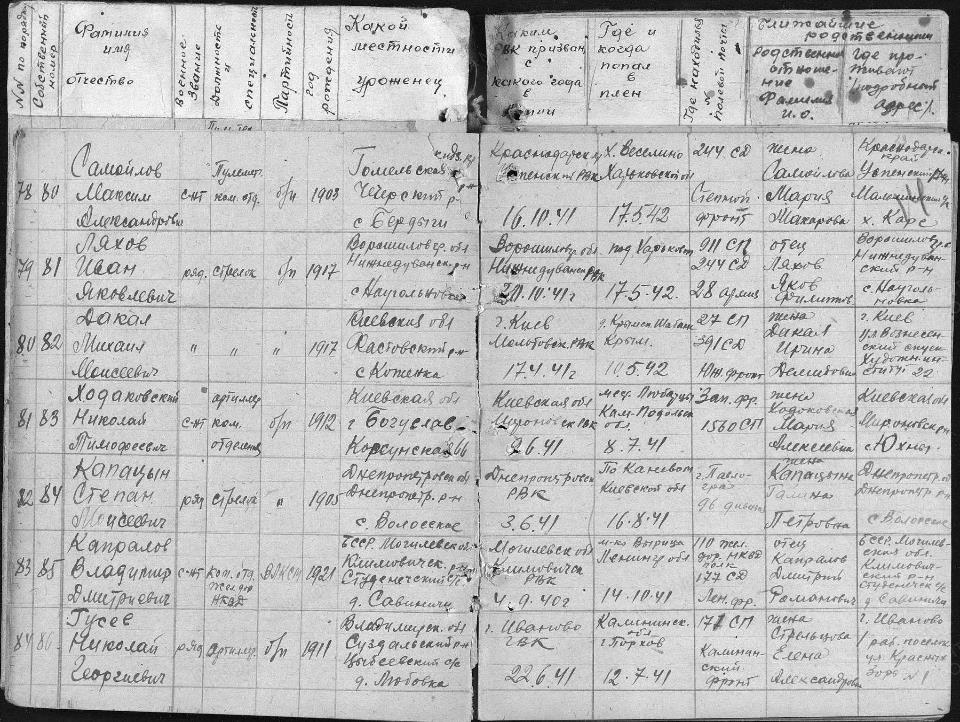 NN по порядку
Собственный номер
Фамилия имя отчество
Военное звание
Должность и специальность
Партийность
Год рождения
Какой местности уроженец
Каким РВК призван с какого года в
Где и когда попал в плен
Где находился № полевой почты
Ближайшие родственники
Родственное отношение Фамилия И.О.
Где проживают (подробный адрес).
78 80 Самойлов Максим Александрович с-нт Пулемет. ком. отд. б/п 1903 Гомельская Чечрский р-н с Бердыги
Краснодарский Успенский РВК 16.10.41 х. Веселино Харьковской об 17.5.42 244 СД Степной фронт жена Самойлова Мария Макаровна Краснодарск. край Успенский р-н х. Карс
79 81 Ляхов Иван Яковлевич ряд. стрелок б/п 1917 Ворошиловгр. обл Нижнедуванск. р-н с Наугольновка
Ворошиловгр. обл Нижнедуванск РВК 20.10.41г под Харьковом 17.5.42. 911 СП 244 СД 28 армия отец Ляхов Яков Филиппов Ворошиловгр. о Нижнедуванский р-н с. Наугольновка
80 82 Дакал Михаил Моисеевич " " " 1917 Киевская обл Фастовский р-н с Кожанка
г. Киев Молотовск. РВК 17.4.41г Крым. 10.5.42 27 СП 391 СД Юж. фронт жена Дакал Ирина Демидовна г. Киев ул Вознесенский спуск Художн. институт 22
81 83 Ходаковский Николай Тимофеевич с-нт артиллер ком. отделения б/п 1912 Киевская обл г Богуслав Корсунская 266
Киевская обл Мироновск РВК 26.41 мес. Любарцы Кам. Подольск обл. 8.7.41 Зап. фр. 1560 СП жена Ходоковская Мария Алексеевна Киевская обл Мироновский р с. Юхны
82 84 Капацын Степан Моисеевич ряд стрелк " 1905 Днепропетров обл Днепропетр. р-н с. Волосское
Днепропетровск РВК 3.6.41 Под Каневом Киевской обл 16.8.41 г. Павлоград 96 дивизия жена Капацына Галина Петровна Днепропетр. об Днепропетр. р-н с Волоское
83 85 Капралов Владимир Дмитриевич с-нт ком. отд. жел. дор НКВД ВЛКСМ 1921 БССР. Могилевск об. Климовичск. р-н Студенческий с/с д. Савиничи
Могилевск обл Климовичск РВК 4.9.40г м-ко Вырица Ленингр обл 14.10.41 110 жел. дор. НКВД полк 177 СД Лен. фр. отец Капралов Дмитрий Романович БССР Могилевская обл. Климовичский р-н Студенческ с/с д Савиничи
84 86 Гусев Николай Георгиевич ряд Артиллер. б/п 1911 Владимирск. обл Суздальский р-н Цыбеевский с/с д. Любовка
г. Иваново ГВК 22.6.41 Калининск. обл г Торков 12.7.41 171 СП Калининский фронт жена Стрельцова Елена Александровна г. Иваново 1 раб. поселок ул Красных Зорь №1